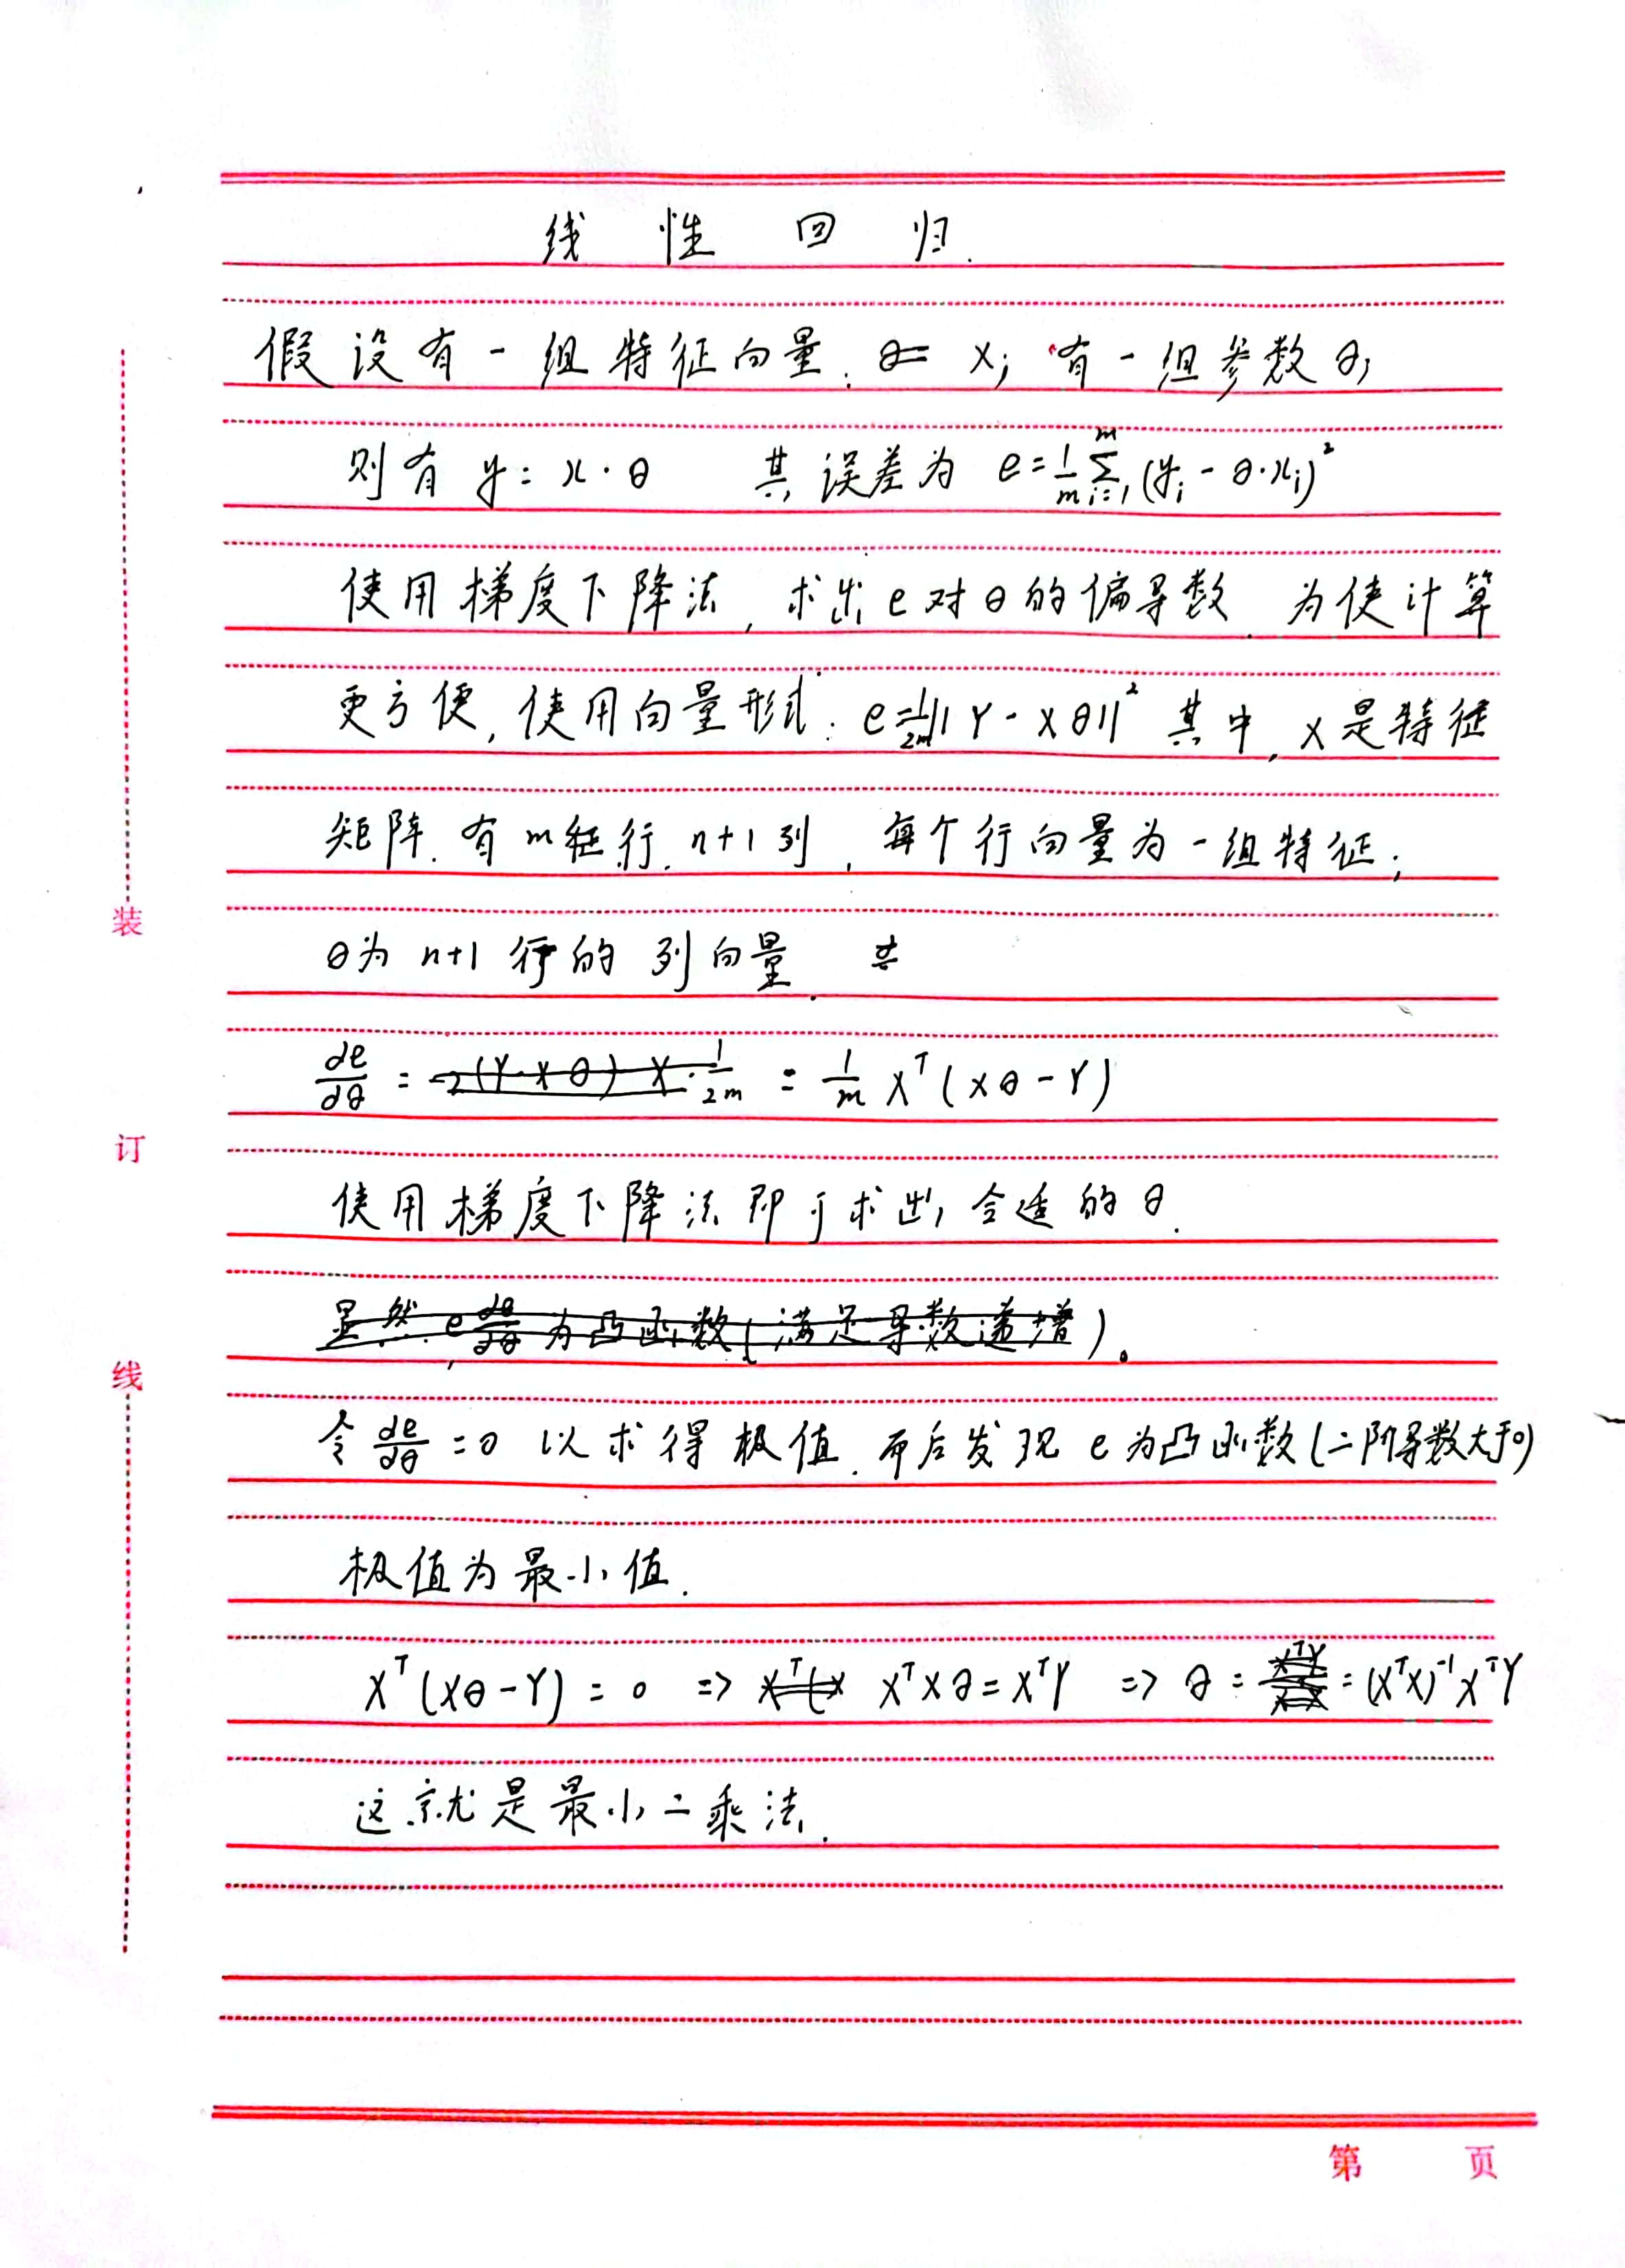 线性回归.
假设有一组特征向量. x; 有一组参数θ;
则有 y = x·θ 其误差为 e = 1/m ∑_{i=1}^{m} (y_i - θ·x_i)²
使用梯度下降法, 求出e对θ的偏导数. 为使计算
更方便, 使用向量形式: e = 1/2m ||Y - Xθ||² 其中, X是特征
矩阵. 有m行. n+1列, 每个行向量为一组特征;
装
θ为 n+1 行的 列向量.
de/dθ = -2(Y-Xθ)X·1/2m = 1/m X^T (Xθ - Y)
订
使用梯度下降法即可求出合适的θ.
显然, e de/dθ 为凸函数(满足导数递增)。
线
令 de/dθ = 0 以求得极值. 而后发现 e为凸函数(二阶导数大于0)
极值为最小值.
X^T (Xθ - Y) = 0 => X^T(X X^TXθ = X^TY => θ = X^TY/X^TX = (X^TX)^{-1}X^TY
这就是最小二乘法.
第 页